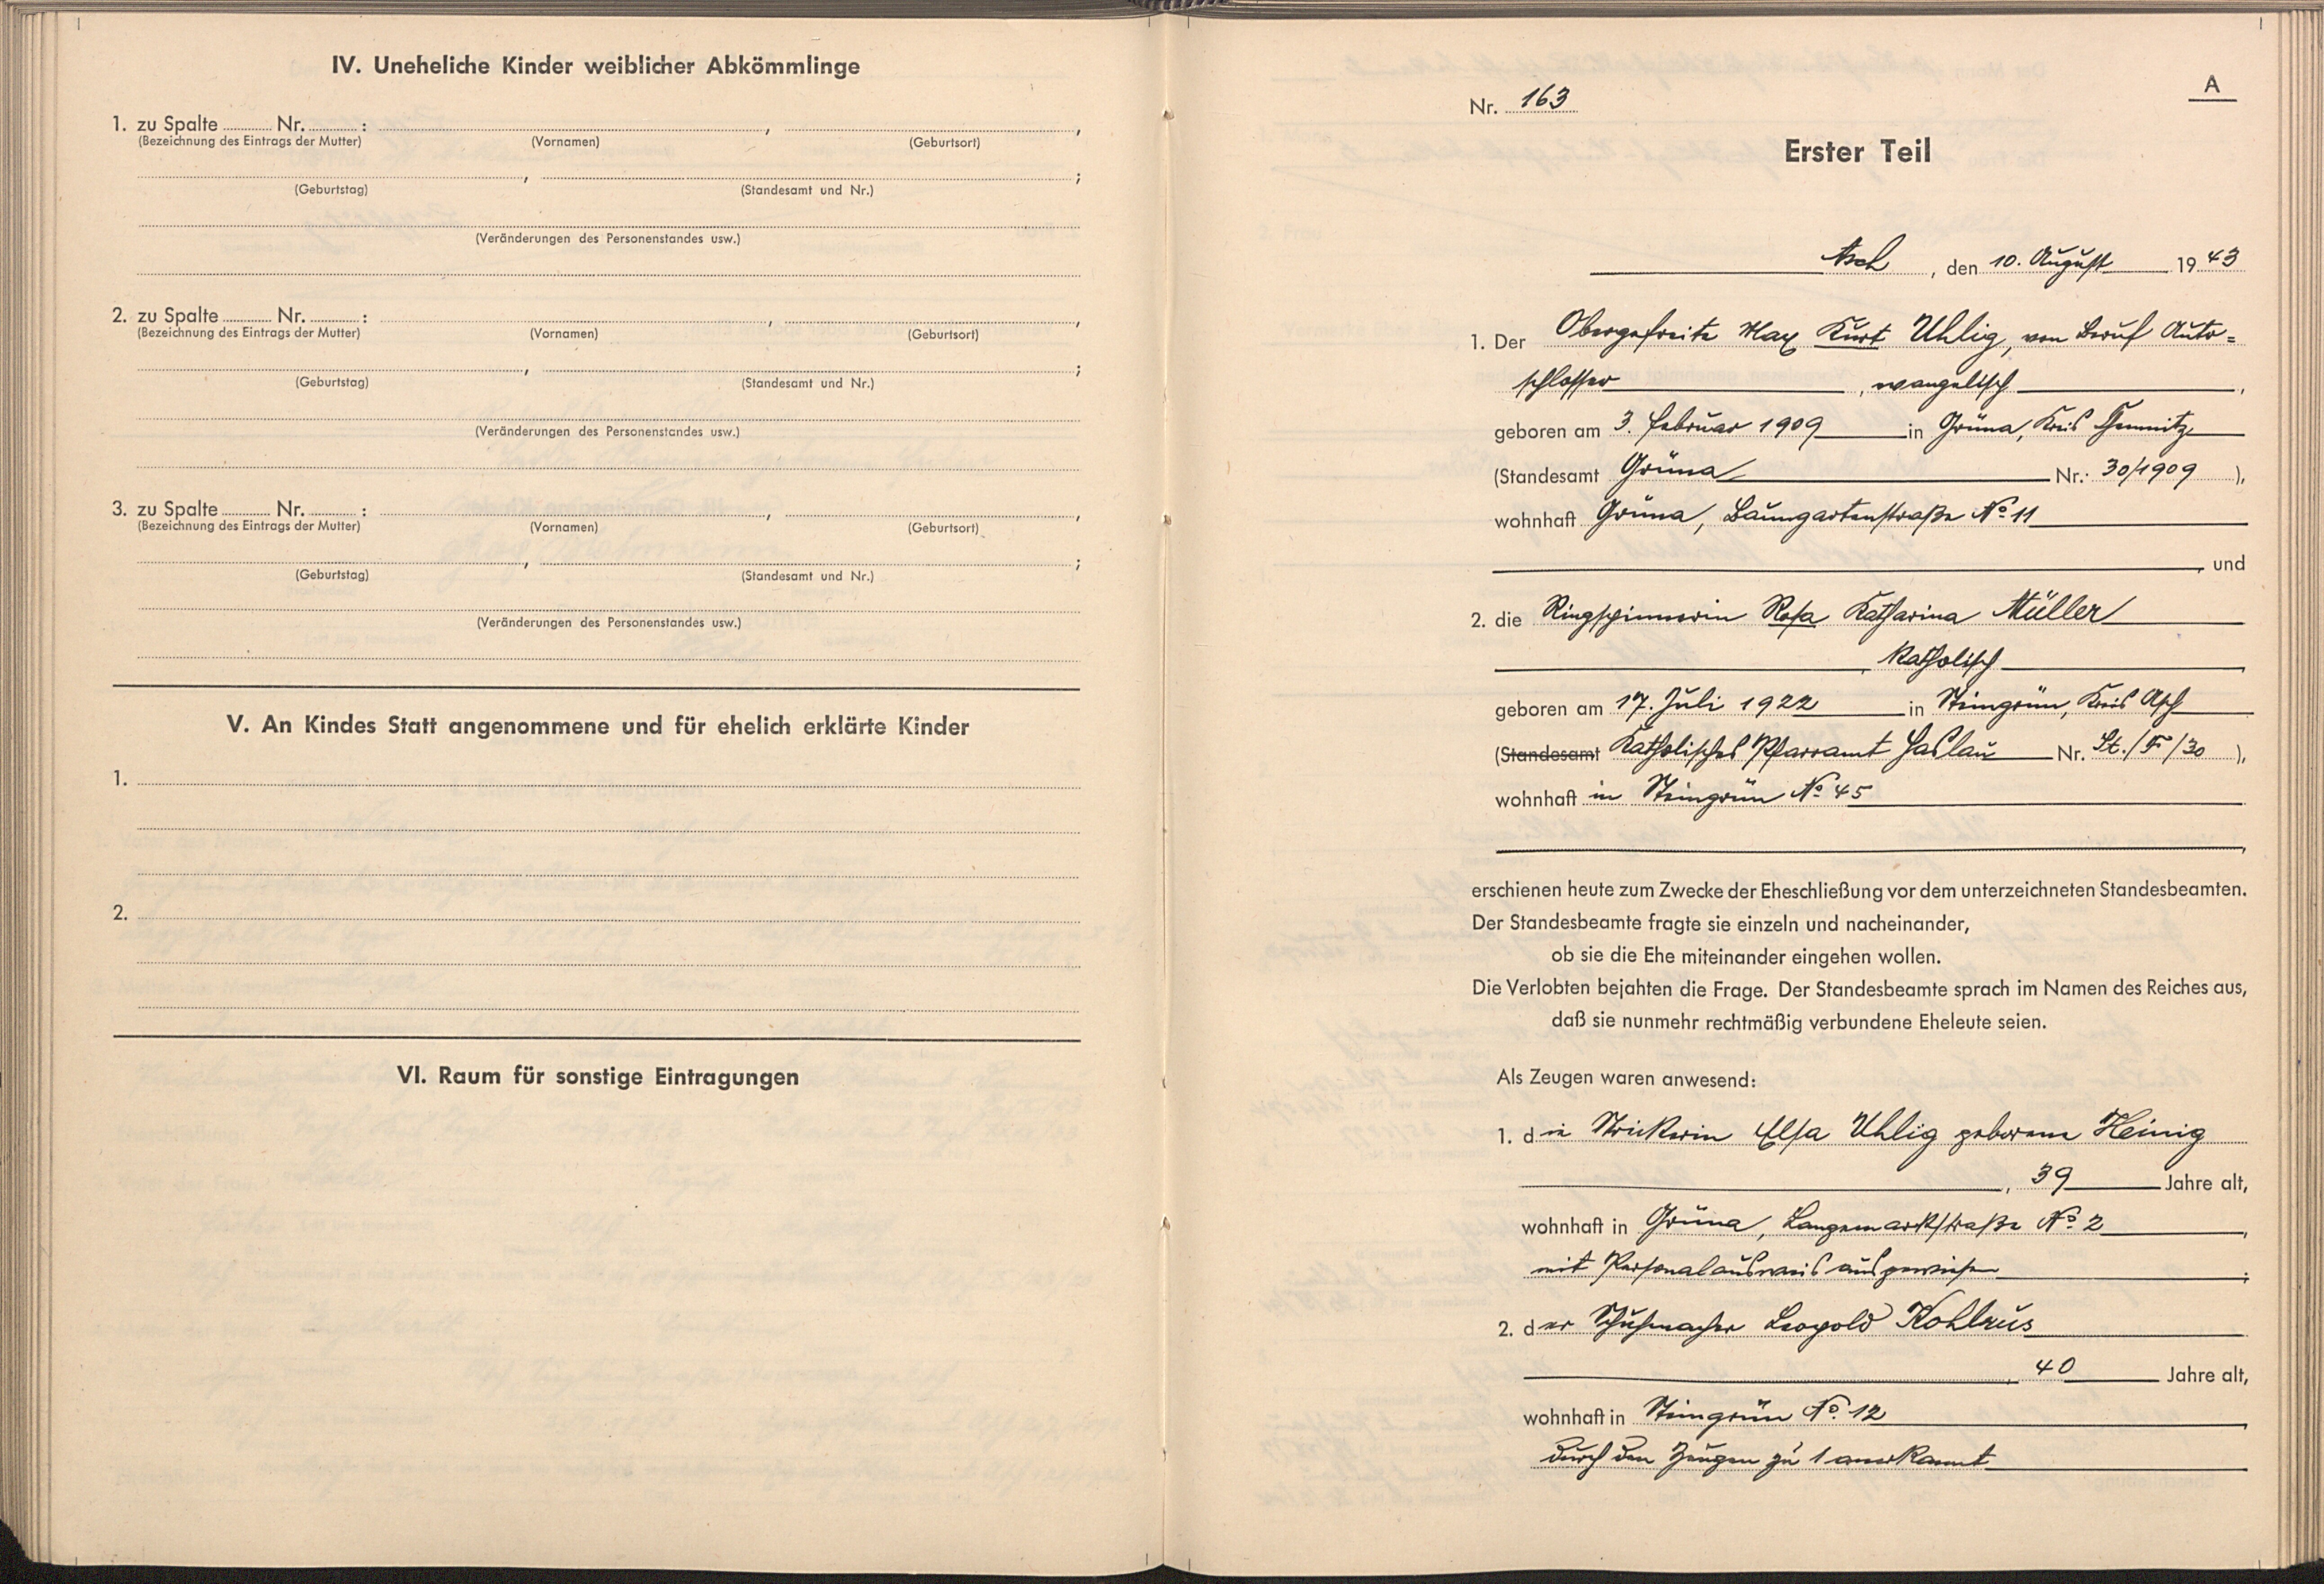 IV. Uneheliche Kinder weiblicher Abkömmlinge
1. zu Spalte Nr. : , ,
(Bezeichnung des Eintrags der Mutter) (Vornamen) (Geburtsort)
, ;
(Geburtstag) (Standesamt und Nr.)
(Veränderungen des Personenstandes usw.)
2. zu Spalte Nr. : , ,
(Bezeichnung des Eintrags der Mutter) (Vornamen) (Geburtsort)
, ;
(Geburtstag) (Standesamt und Nr.)
(Veränderungen des Personenstandes usw.)
3. zu Spalte Nr. : , ,
(Bezeichnung des Eintrags der Mutter) (Vornamen) (Geburtsort)
, ;
(Geburtstag) (Standesamt und Nr.)
(Veränderungen des Personenstandes usw.)
V. An Kindes Statt angenommene und für ehelich erklärte Kinder
1.
2.
VI. Raum für sonstige Eintragungen
A
Nr. 163
Erster Teil
Asch, den 10. August 1943
1. Der Obergefreite Max Kurt Uhlig, von Beruf Auto=
schlosser, evangelisch,
geboren am 3. Februar 1909 in Grüna, Kreis Chemnitz
(Standesamt Grüna Nr. 30/1909),
wohnhaft Grüna, Baumgartenstraße No 11
, und
2. die Ringspinnerin Rosa Katharina Müller
, katholisch
geboren am 17. Juli 1922 in Steingrün, Kreis Asch
(Standesamt Katholisches Pfarramt Haslau Nr. St./F/30),
wohnhaft in Steingrün No 45
,
erschienen heute zum Zwecke der Eheschließung vor dem unterzeichneten Standesbeamten.
Der Standesbeamte fragte sie einzeln und nacheinander,
ob sie die Ehe miteinander eingehen wollen.
Die Verlobten bejahten die Frage. Der Standesbeamte sprach im Namen des Reiches aus,
daß sie nunmehr rechtmäßig verbundene Eheleute seien.
Als Zeugen waren anwesend:
1. die Strickerin Elsa Uhlig geborene Heinig
, 39 Jahre alt,
wohnhaft in Grüna, Langemarckstraße No 2,
mit Personalausweis ausgewiesen;
2. der Schuhmacher Leopold Kohlrus
, 40 Jahre alt,
wohnhaft in Steingrün No 12,
durch den Zeugen zu 1 anerkannt